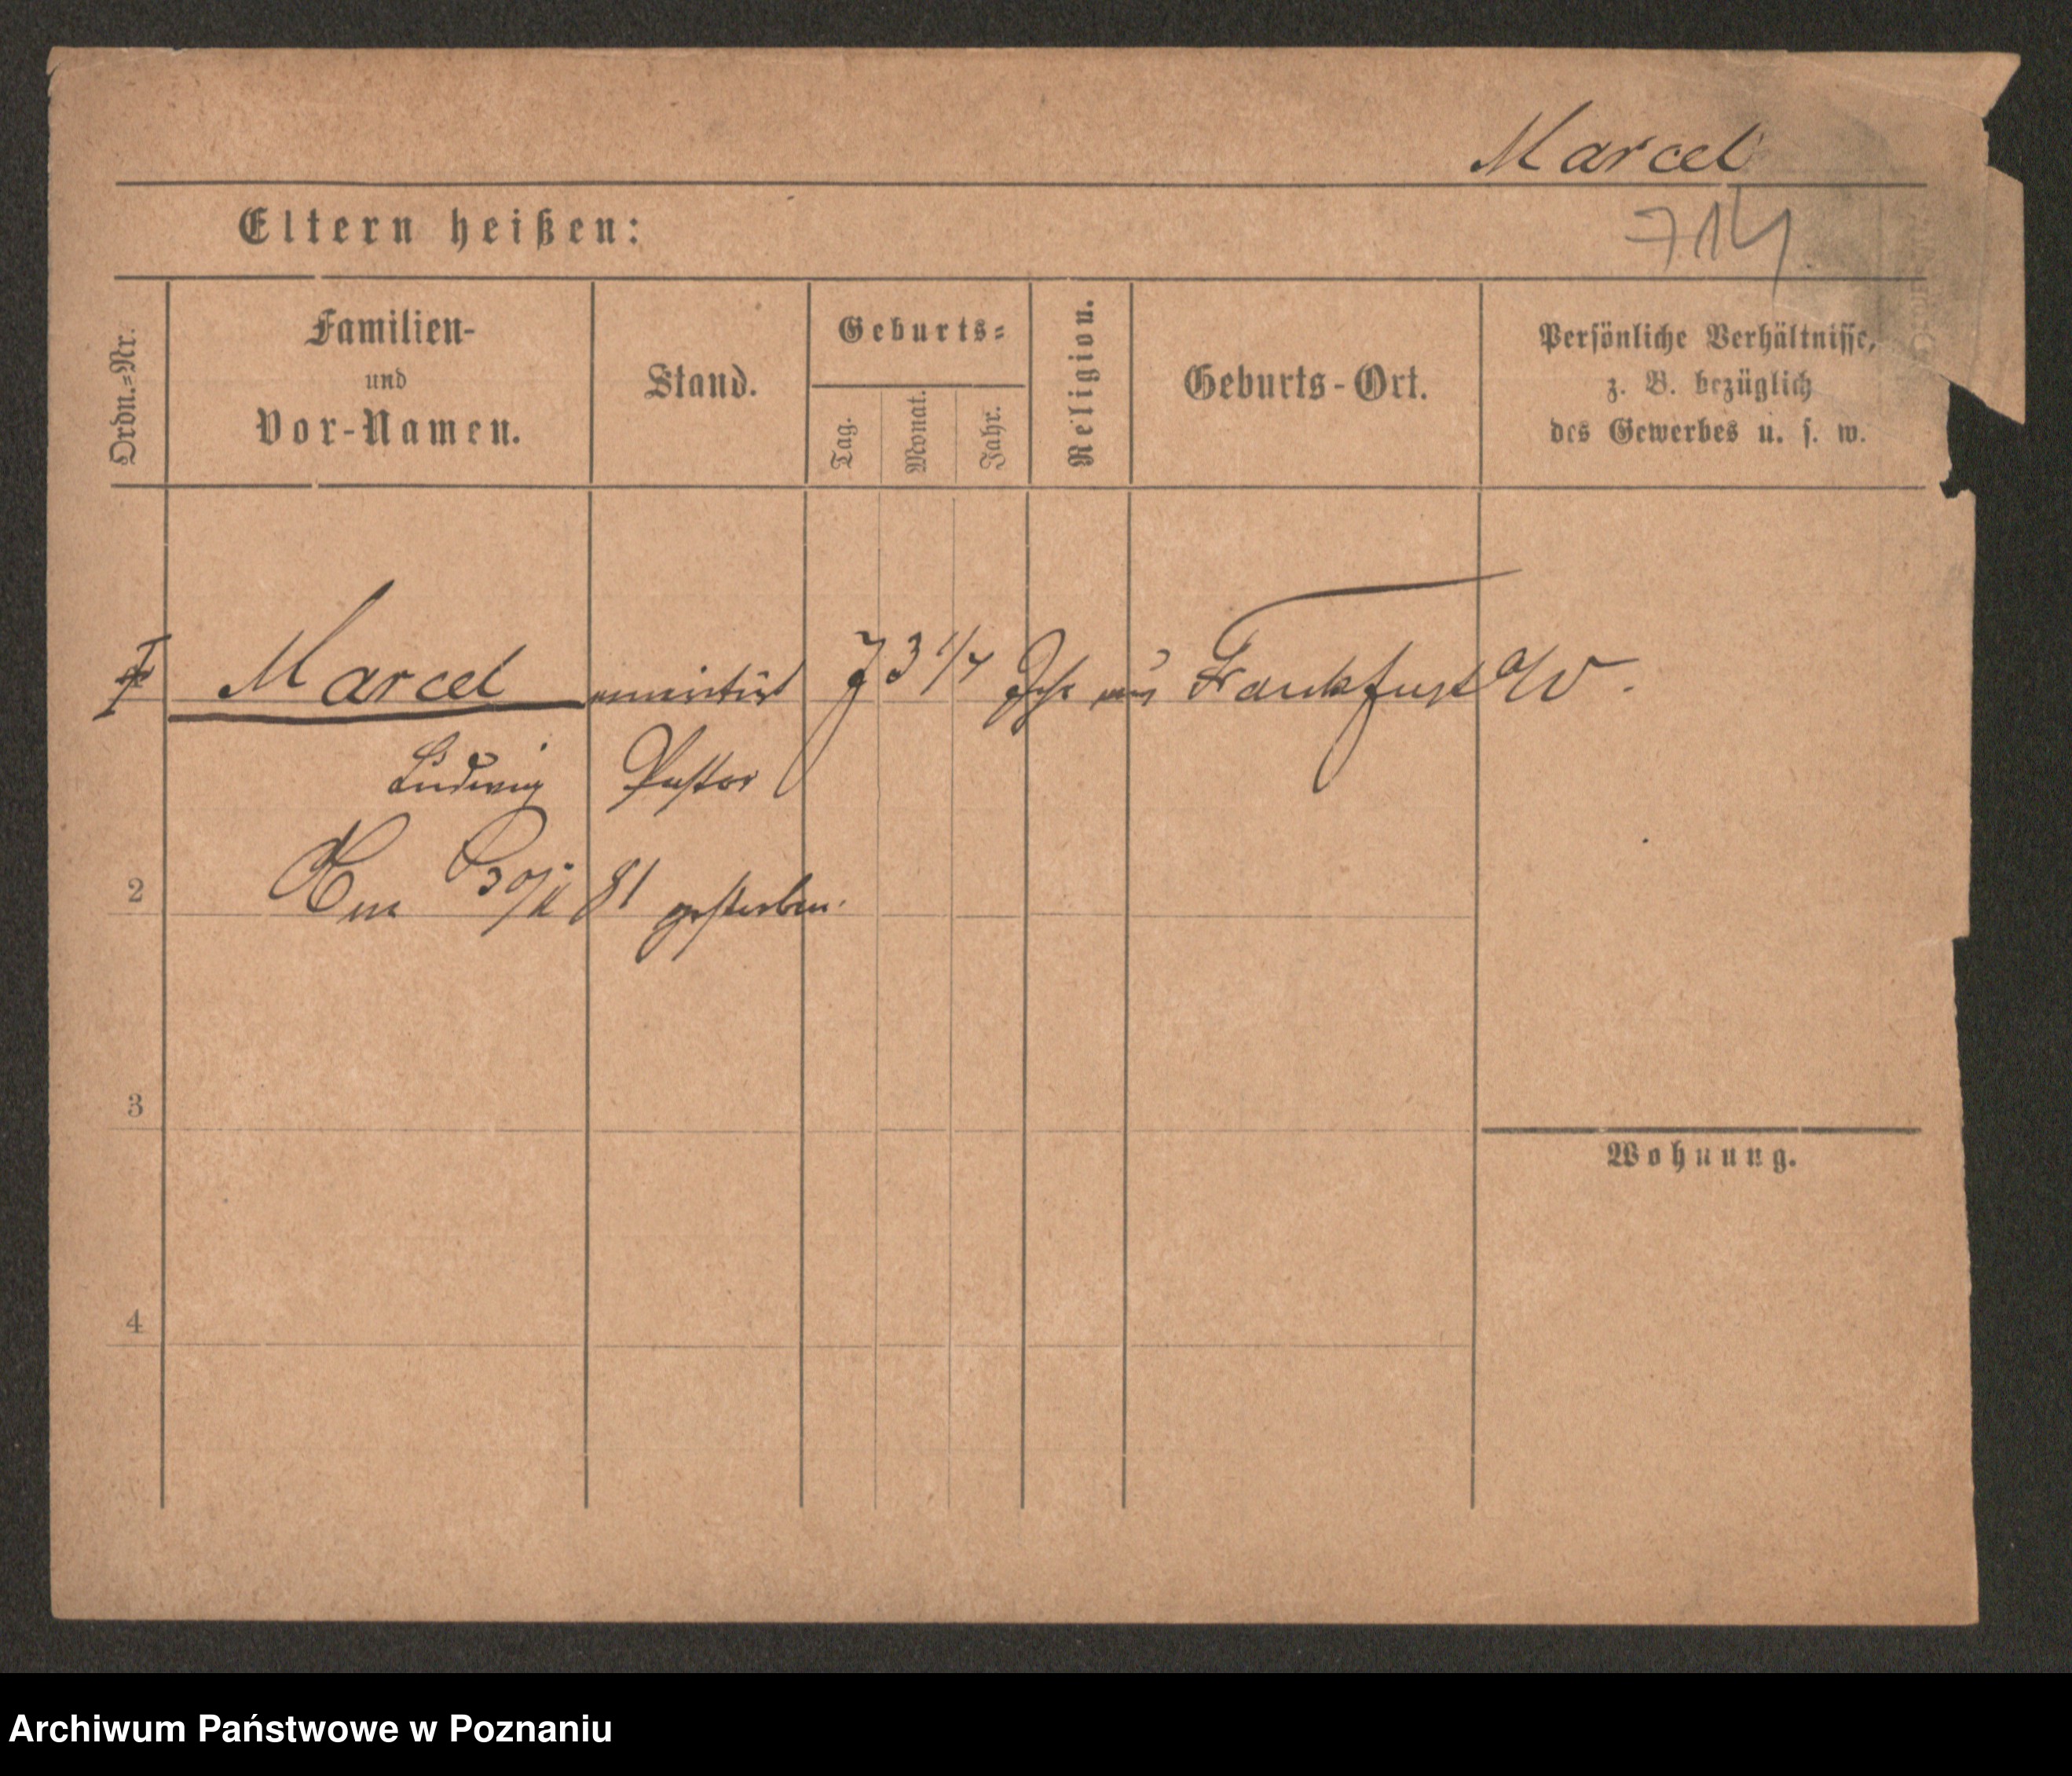 Marcel
Eltern heißen:
714
Ordn.=Nr.
Familien-
und
Vor-Namen.
Stand.
Geburts=
Tag.
Monat.
Jahr.
Religion.
Geburts-Ort.
Persönliche Verhältnisse,
z. B. bezüglich
des Gewerbes u. s. w.
Marcel emeritirt 73 1/4 aus Frankfurt a/O.
Ludwig Pastor
2
Am 81 gestorben.
3
Wohnung.
4
Archiwum Państwowe w Poznaniu